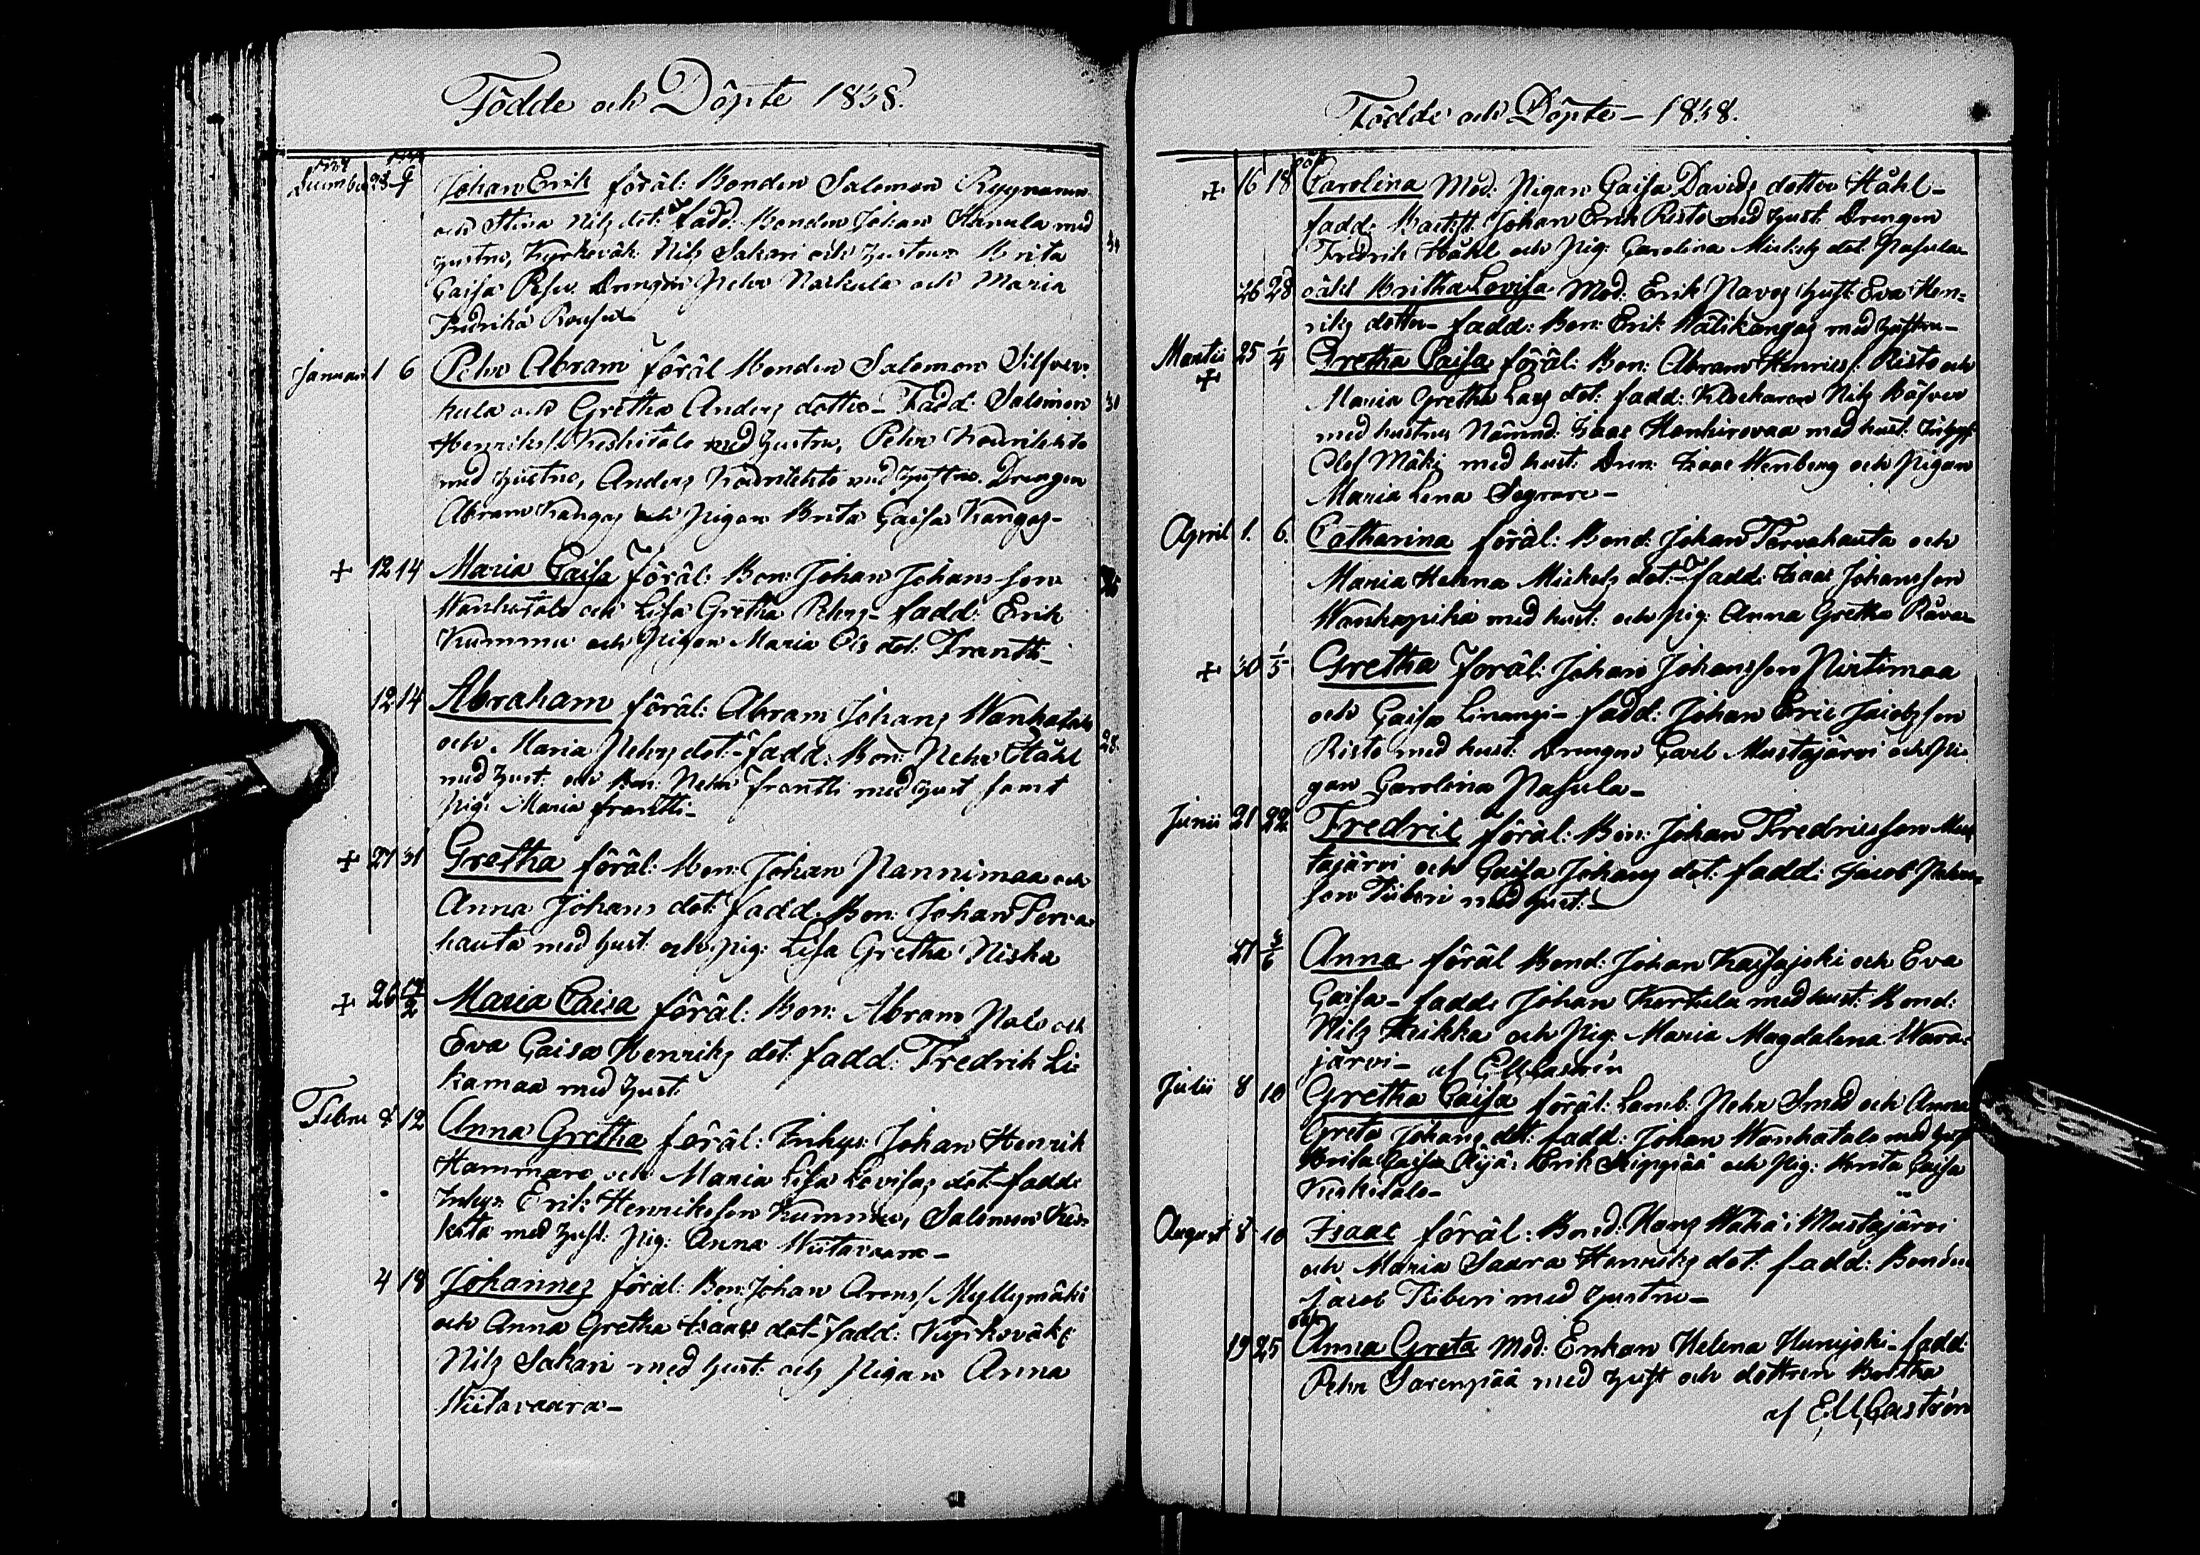 Födde och Döpte 1838.
Johan Erik föräl: Bonden Salomon
och Stina Nilz det: fadd: Bonden Johan Harula med
hustru, Kyrkoväk: Nilz Sakari och hustrun Brita
Caisa Drengen Pehr och Maria
Fredrika
Januari 1 6 Pehr Abram föräl Bonden Salomon Silfver-
kula och Gretha Anders dotter- Fadd: Salomon
Henrikss: Keskitalo med hustru, Pehr
med hustru, Anders med hustru Drengen
Abram Kangas och pigan Brita Caisa Kangas-
+ 12 14 Maria Caisa föräl: Bon: Johan Johansson
Wanhatalo och Lisa Gretha Pehrs- fadd: Erik
Kummu och Pigan Maria det: Frantti-
12 14 Abraham föräl: Abram Johans Wanhatalo
och Maria Pehrs det:- fadd: Bon: Pehr Ståhl
med hust: och Bon: Pehr Frantti med hust samt
pig: Maria Frantti-
+ 27 31 Gretha föräl: Bon: Johan Nannimaa och
Anna Johans det: fadd: Bon: Johan Terva-
hauta med hust: och pig: Lisa Gretha Niska
+ 26 Maria Caisa föräl: Bon: Abram Palo och
Eva Caisa Henriks det: fadd: Fredrik Li-
kamaa med hust:
Febru 8 12 Anna Gretha föräl: Inhys: Johan Henrik
Hammare och Maria Lisa Lovisas det- fadd:
Inhys: Erik Henriksson Kummu, Salomon
med hust: pig: Anna Wiitavaara-
4 18 Johannes föräl: Bon: Johan Arons/ Myllymäki
och Anna Gretha Isaacs det- fadd: Kyrkoväkt:
Nilz Sakari med hust: och pigan Anna
Wiitavaara-
Födde och Döpte- 1838.
+ 16 18 Carolina Mod: Pigan Caisa Davids dotter Ståhl-
fadd: Johan Erik Risto med hust: Drengen
Fredrik Ståhl och Pig: Carolina Mickels det: Pasula-
26 28 Britha Lovisa Mod: Erik Pavos hust: Eva Hen-
riks dotter- fadd: Bon: Erik Wälikangas med hustru-
Martii + 25 1/4 Gretha Caisa föräl: Bon: Abram Henriss: Risto och
Maria Gretha Lars det: fadd: Klockaren Nilz
med hustru Nämnd: Isaac Hankirovaa med hust:
Olof Mäki med hust: Dren: Isaac Wenberg och Pigan
Maria Lena
April 1. 6. Catharina föräl: Bond: Johan Tervahauta och
Maria Helena Mickels det:- fadd: Isaac Johansson
Wanhapiha med hust: och pig: Anna Gretha
+ 30 1/5 Gretha föräl: Johan Johansson Pirtimaa
och Caisa fadd: Johan Eric Jacobsson
Risto med hust: Drengen Carl Mustajärvi och Pi-
gan Carolina Pasula-
Junii 21 22 Fredric föräl: Bon: Johan Fredricsson Mus-
tajärvi och Caisa Johans det: fadd: Jacob Pehrs-
son Tiiberi med hust:-
27 Anna föräl Bond: Johan Kaisajoki och Eva
Caisa- fadd: Johan Kertula med hust: Bond:
Nilz och Pig: Maria Magdalena Wara-
järvi- af E.M.Castrén
Julii 8 10 Gretha Caisa föräl: Landb: Pehr Smed och Anna
Greta Johans det: fadd: Johan Wanhatalo med hust
Brita Caisa Erik och Pig: Brita Caisa
Keskitalo-
August 8 10 Isaac föräl: Bond: Hans i Mustajärvi
och Maria Saara Henriks det: fadd: Bonden
Jacob Tiiberi med hustru-
19 25 Anna Greta Mod: Enkan Helena fadd:
Pehr Sarenpää med hust och dottren Britha
af E.M.Castrén